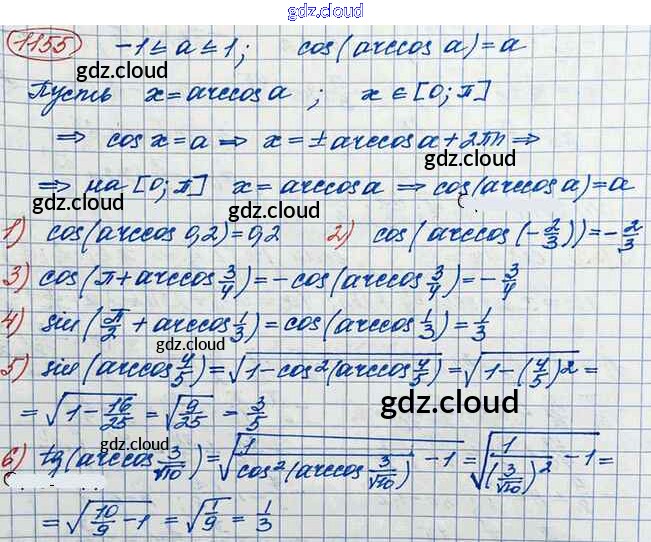 gdz.cloud
1155 -1 ≤ a ≤ 1; cos(arccos a) = a
gdz.cloud gdz.cloud
Пусть x = arccos a; x ∈ [0; π]
⇒ cos x = a ⇒ x = ± arccos a + 2πn ⇒
gdz.cloud gdz.cloud
⇒ на [0; π] x = arccos a ⇒ cos(arccos a) = a
gdz.cloud gdz.cloud
1) cos(arccos 0,2) = 0,2 2) cos(arccos(-2/3)) = -2/3
3) cos(π + arccos 3/4) = -cos(arccos 3/4) = -3/4
4) sin(π/2 + arccos 1/3) = cos(arccos 1/3) = 1/3
gdz.cloud
5) sin(arccos 4/5) = √(1 - cos²(arccos 4/5)) = √(1 - (4/5)²) =
= √(1 - 16/25) = √(9/25) = 3/5
gdz.cloud gdz.cloud
6) tg(arccos 3/√10) = √(1/cos²(arccos 3/√10) - 1) = √(1/(3/√10)² - 1) =
= √(10/9 - 1) = √(1/9) = 1/3